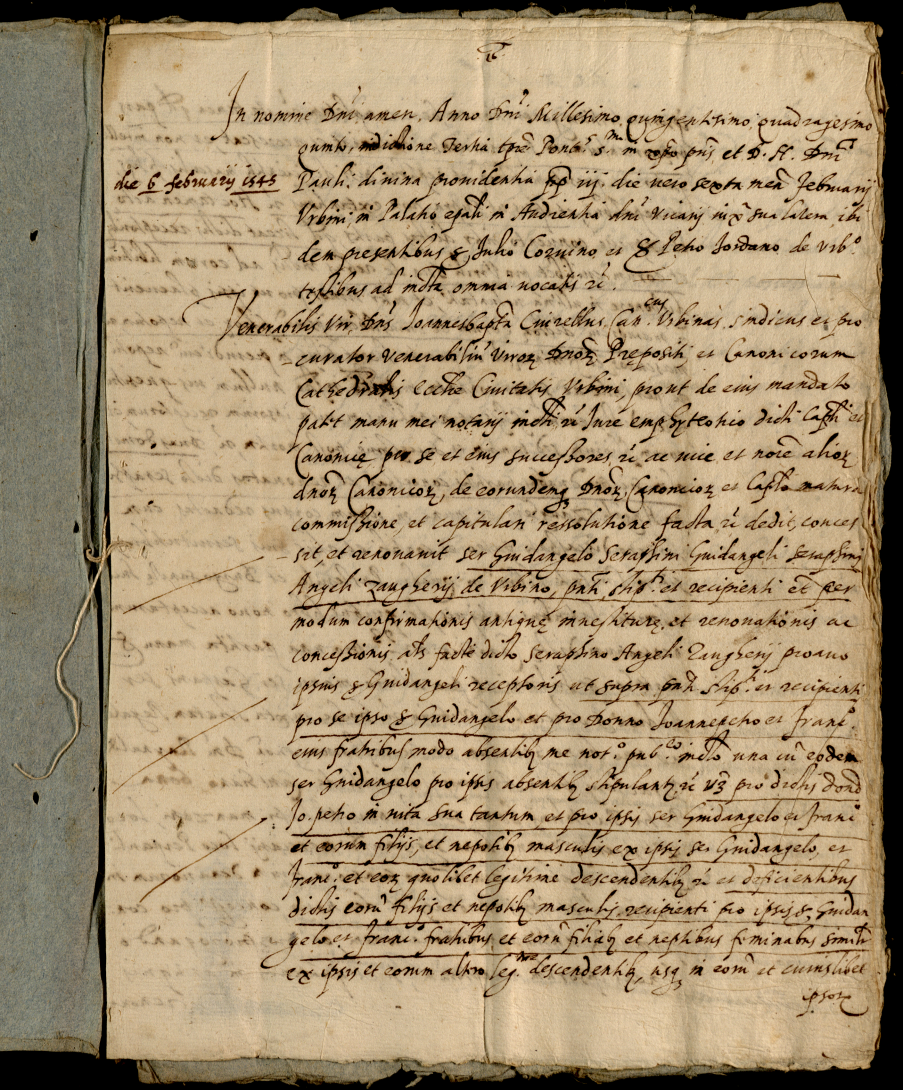 In nomine Dñi amen. Anno Dñi Millesimo quingentesimo quadragesimo
quinto, indictione Tertia tpre Pontus s.mi in xpo pris et D. N. Dñi
die 6 februarij 1545
Pauli divina providentia pp iij. die vero sexta men Februarij
Urbini in Palatio epali in Audientia dni Vicarij iux sua latera ibi
dem presentibus Julio Corvino et Petro Jordano de Urbo.
testibus ad infta omnia vocatis
Venerabilis Vir Dns Joannesbapta Can.cus Urbinas, sindicus et pro
curator venerabiliu viroꝝ Dnoꝝ Prępositi et Canonicorum
Cathedralis eccthe Civitatis Urbini, prout de eius mandato
patet manu mei notarij jure emphyteotico dicti Capti et
Canonicę pro se et eius successores ac vice et noie alioꝝ
dnoꝝ Canonicoꝝ, de eorundemq Dnoꝝ Canonicoꝝ et Capto matura
commissione, et capitulari ressolutione facta dedit, conces
sit, et renovavit ser Guidangelo Seraphini Guidangeli seraphini
Angeli Zaugherij de Urbino, pnti, stipti et recipienti et per
modum confirmationis antiquę investiturę, et renovationis ac
concessionis als facte dicto Seraphino Angeli Zaugherij proavo
ipsius Guidangeli receptoris ut supra pnti stipti et recipienti
pro se ipso Guidangelo et pro Donno Joannepetro et franco.
eius fratribus modo absentibꝫ me noto. pubco. infto una cu eodem
ser Guidangelo pro ipsis absentibꝫ stipulantibꝫ vꝫ pro dictis dono
Jo. petro in vita sua tantum, et pro ipsis ser Guidangelo et franco
et eorum filijs, et nepotibꝫ masculis ex ipsis ser Guidangelo, et
franco. et eoꝝ quolibet legitime descendentibꝫ et deficientibus
dictis eoru filijs et nepotibꝫ masculis recipienti pro ipsis Guidan
gelo et franco. fratribus et eoru filiabꝫ et neptibus feminabus similr
ex ipsis et eorum altro leg.me descendentibꝫ, usqꝫ in eoru et cuiuslibet
ipsoꝝ